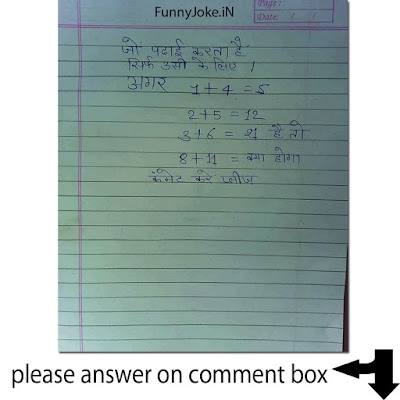 FunnyJoke.iN
Page:
Date: / /
जों पढाई करता है
सिर्फ उसी के लिए ।
अगर 1+4 = 5
2+5 = 12
3+6 = 21 है तो
8+11 = क्या होगा
कंमेट करे प्लीज
please answer on comment box